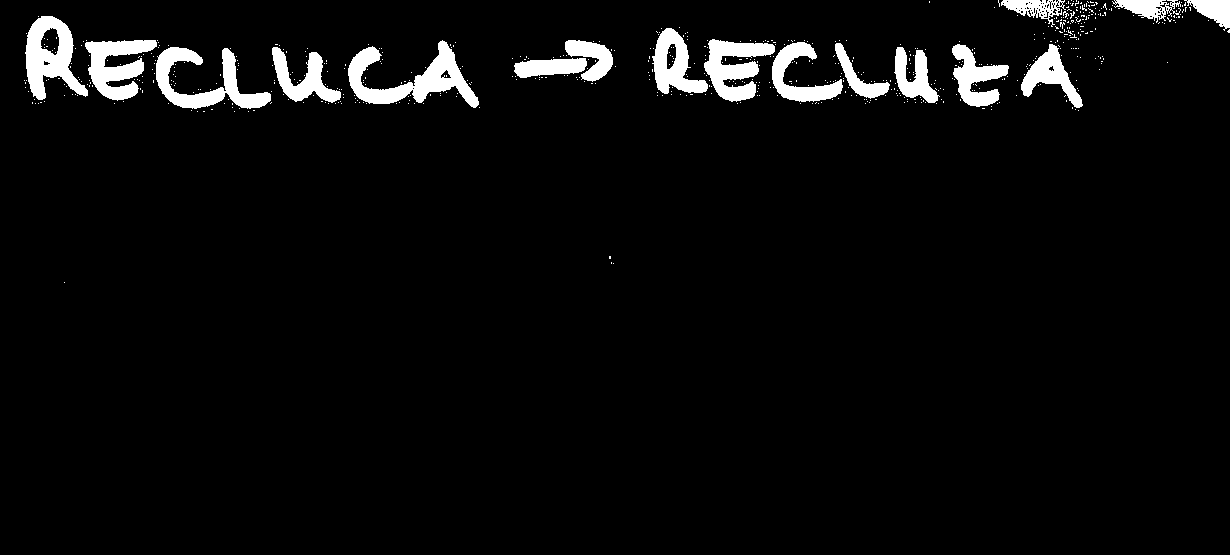 RECLUCA → RECLUZA